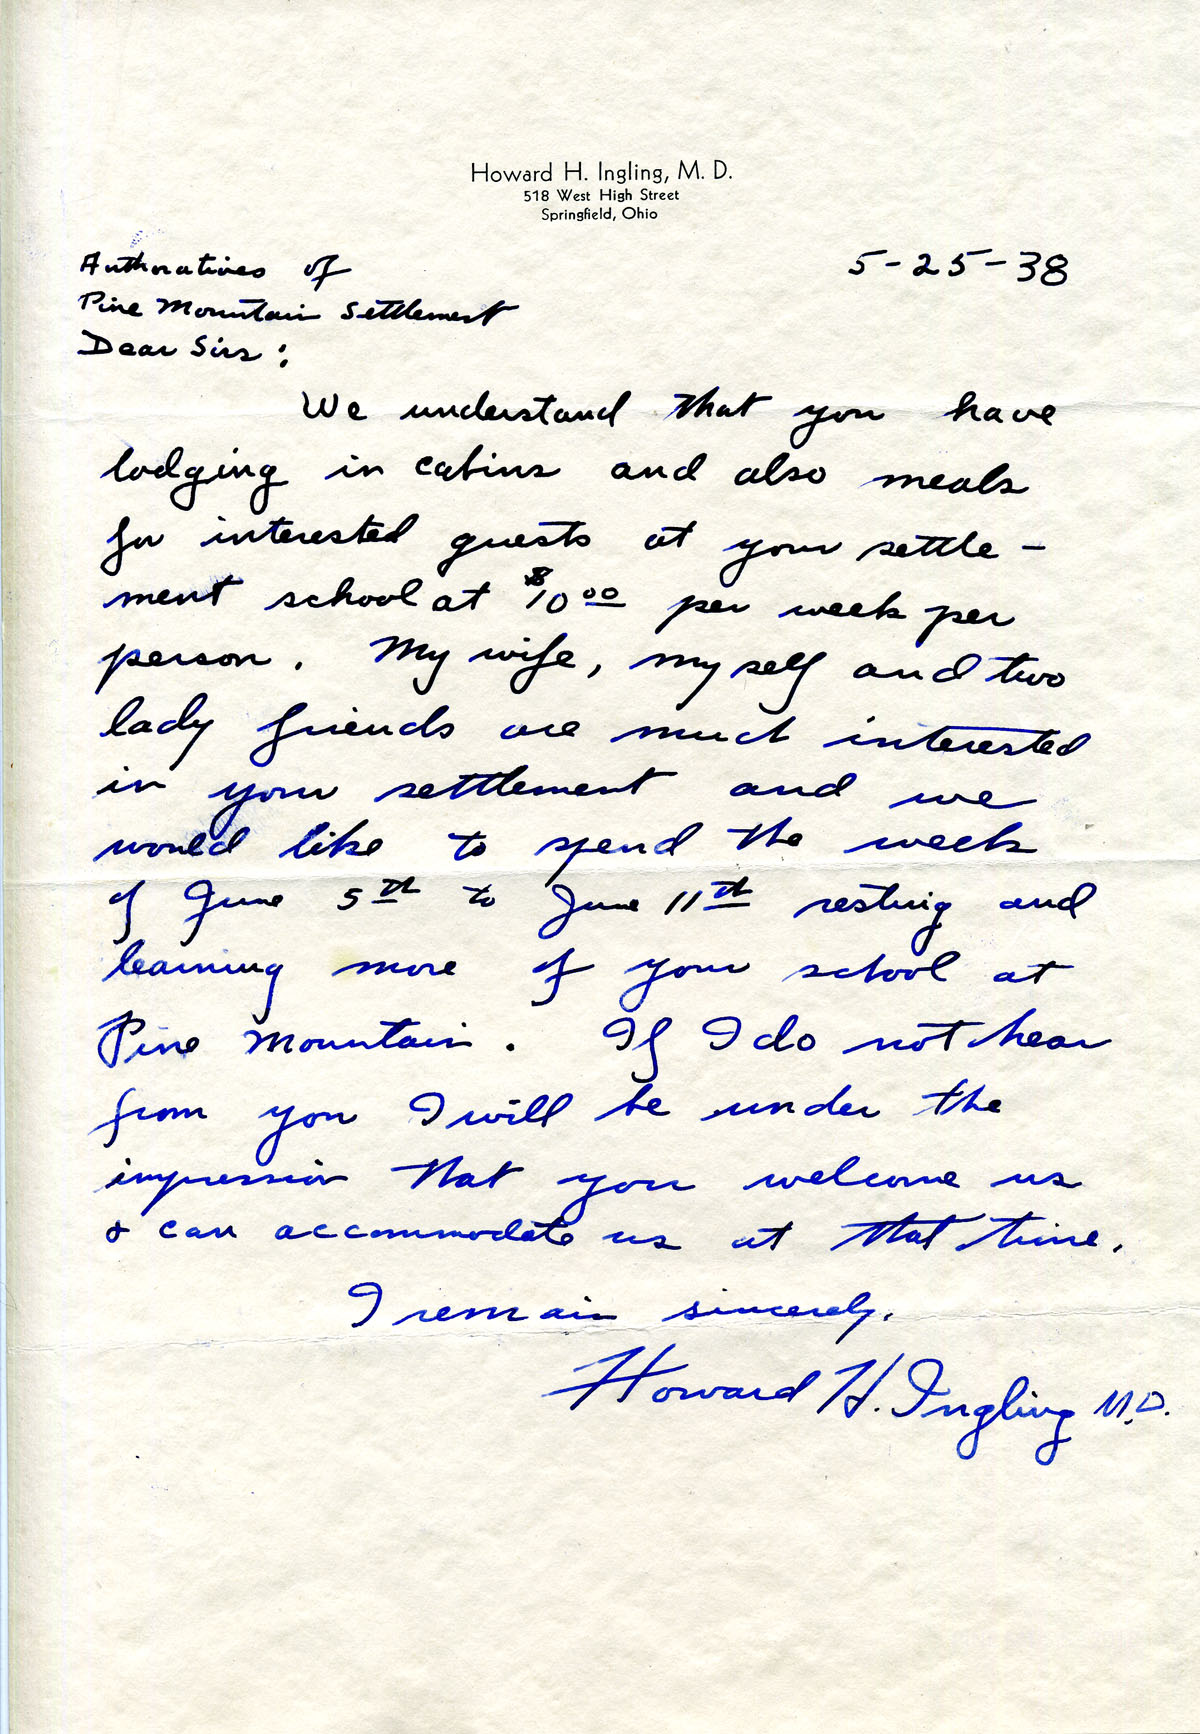 Howard H. Ingling, M. D.
518 West High Street
Springfield, Ohio
Authoratives of
5-25-38
Pine Mountain Settlement
Dear Sirs:
We understand that you have
lodging in cabins and also meals
for interested guests at your settle-
ment school at $10.00 per week per
person. My wife, myself and two
lady friends are much interested
in your settlement and we
would like to spend the week
of June 5th to June 11th resting and
learning more of your school at
Pine Mountain. If I do not hear
from you I will be under the
impression that you welcome us
& can accommodate us at that time.
I remain sincerely,
Howard H. Ingling M.D.